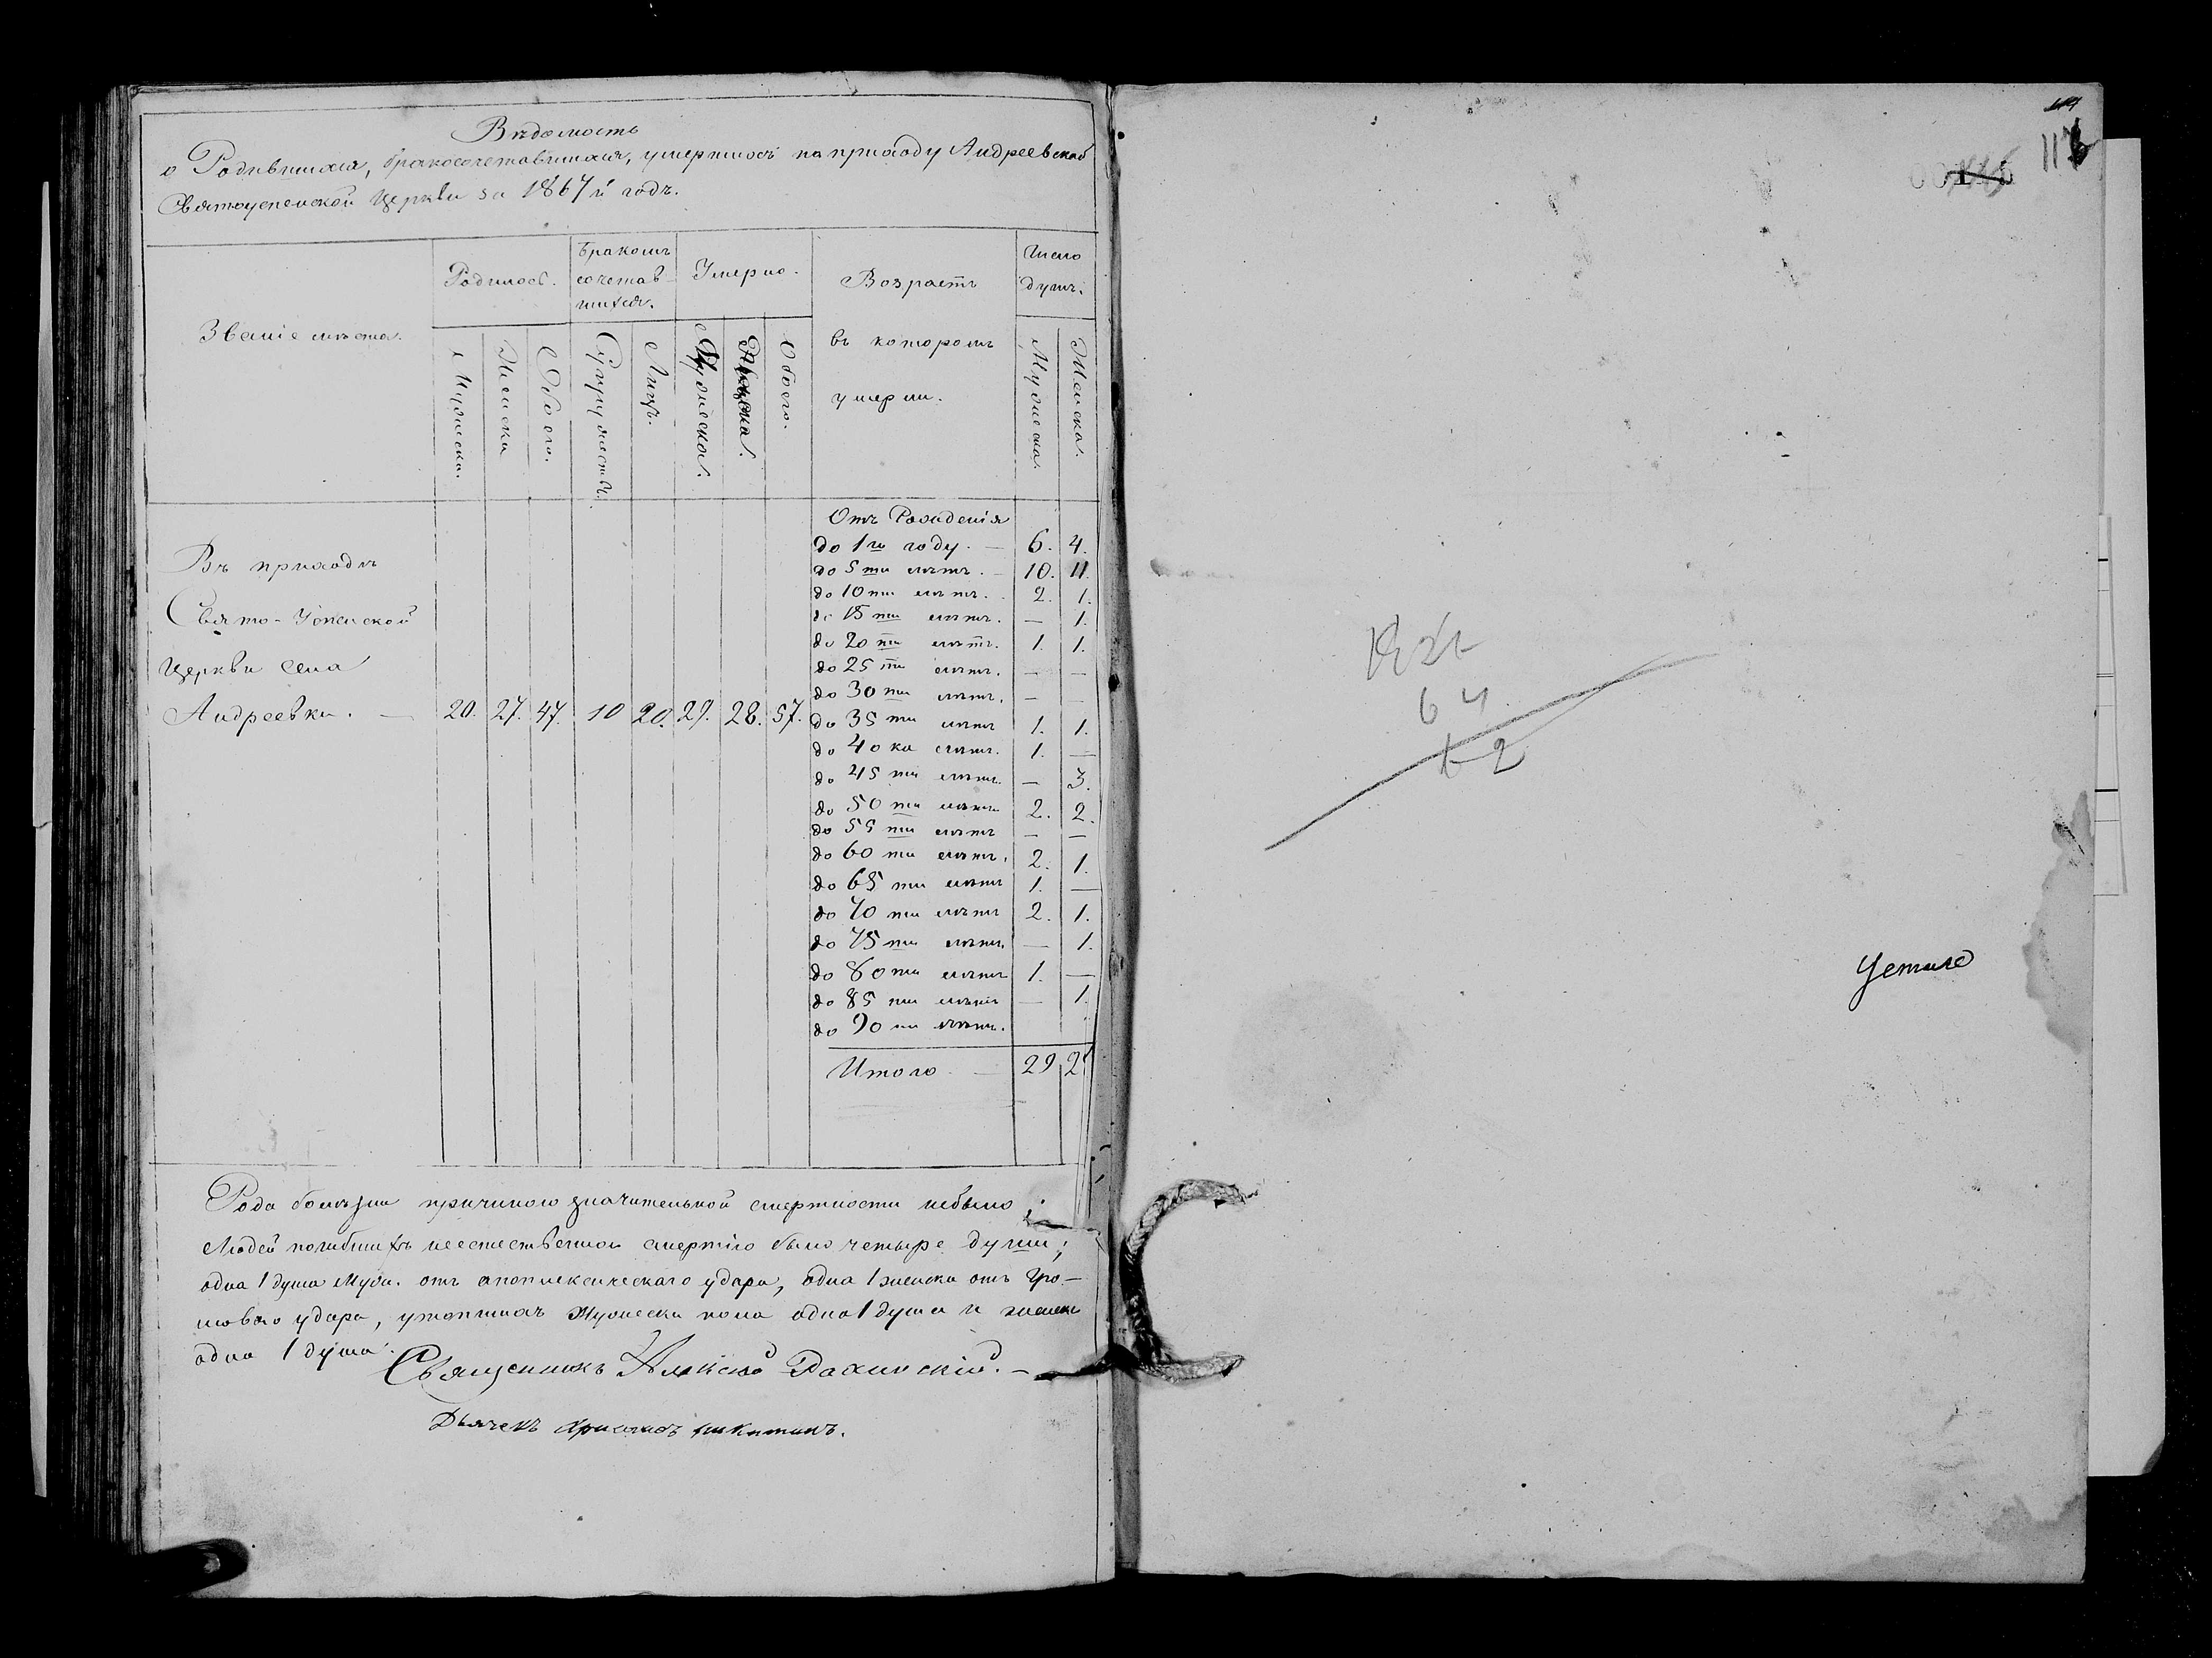 Вѣдомость
о Родившихся, бракосочетавшихся, умершихъ по приходу Андреевской
Святоуспенской Церкви за 1867й годъ.
Званіе мѣста.
Родилось.
Бракомъ
сочетав-
шихся.
Умерло.
Возрастъ
въ которомъ
умерли.
Число
душъ.
Мужеска.
Женска
Обоего.
Супружествъ.
Лицъ.
Мужеска.
Женска.
Обоего.
Мужеска.
Женска.
Въ приходѣ
Свято-Успенской
Церкви села
Андреевки. — 20. 27. 47. 10 20. 29. 28. 57.
Отъ Рожденія
до 1го году. — 6. 4.
до 5ти лѣтъ. — 10. 11.
до 10ти лѣтъ. 2. 1.
до 15ти лѣтъ. — 1.
до 20ти лѣтъ. 1. 1.
до 25ти лѣтъ. — —
до 30ти лѣтъ. — —
до 35ти лѣтъ 1. 1.
до 40ка лѣтъ. 1. —
до 45ти лѣтъ. — 3.
до 50ти лѣтъ 2. 2.
до 55ти лѣтъ — —
до 60ти лѣтъ. 2. 1.
до 65ти лѣтъ 1. —
до 70ти лѣтъ 2. 1.
до 75ти лѣтъ. — 1.
до 80ти лѣтъ 1. —
до 85ти лѣтъ — 1.
до 90ти лѣтъ.
Итого — 29 2
Рода болѣзни причиною значительной смертности небыло;
Людей погибшихъ неестественною смертію было четыре души;
одна 1 душа Муж. отъ апоплексическаго удара, одна 1 женска отъ Гро-
моваго удара, утопшихъ Мужеска пола одна 1 душа и женска
одна 1 душа.
Священникъ Алексѣй
Дьячекъ Никитинъ.
64
62